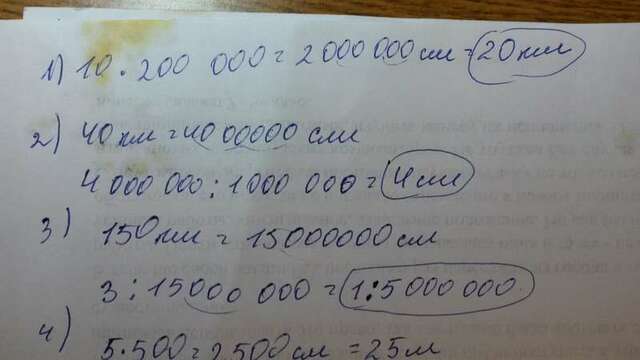 1) 10 · 200 000 = 2 000 000 см = 20 км
2) 40 км = 4000000 см
4 000 000 : 1000 000 = 4 см
3) 150 км = 15000000 см
3 : 15000 000 = 1:5 000 000
4) 5·500 = 2500 см = 25 м